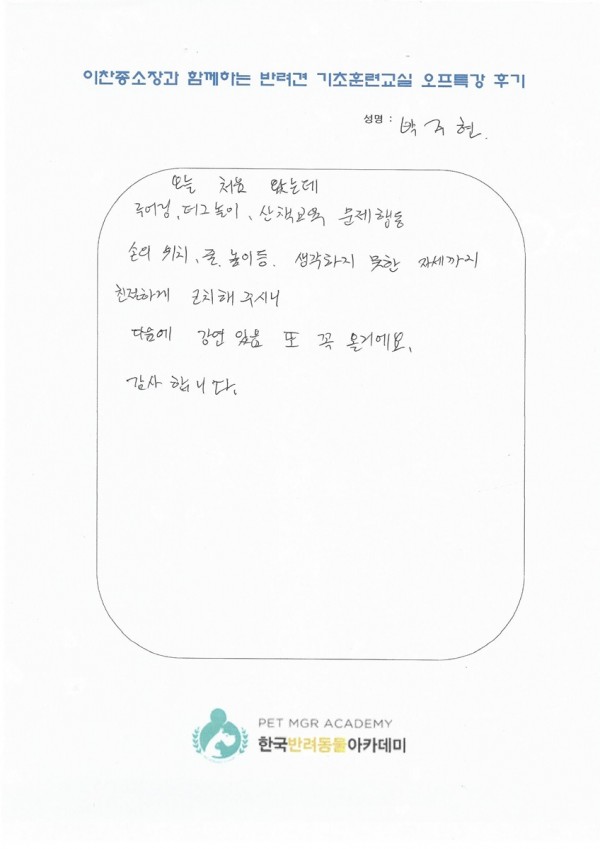 이찬종소장과 함께하는 반려견 기초훈련교실 오프특강 후기
성명 : 박주현.
오늘 처음 왔는데
터그놀이, 산책교육 문제행동
손의 위치, 줄, 높이등. 생각하지 못한 자세까지
친절하게 코치해 주시니
다음에 강연 있음 또 꼭 올거에요.
감사합니다.
PET MGR ACADEMY
한국반려동물아카데미